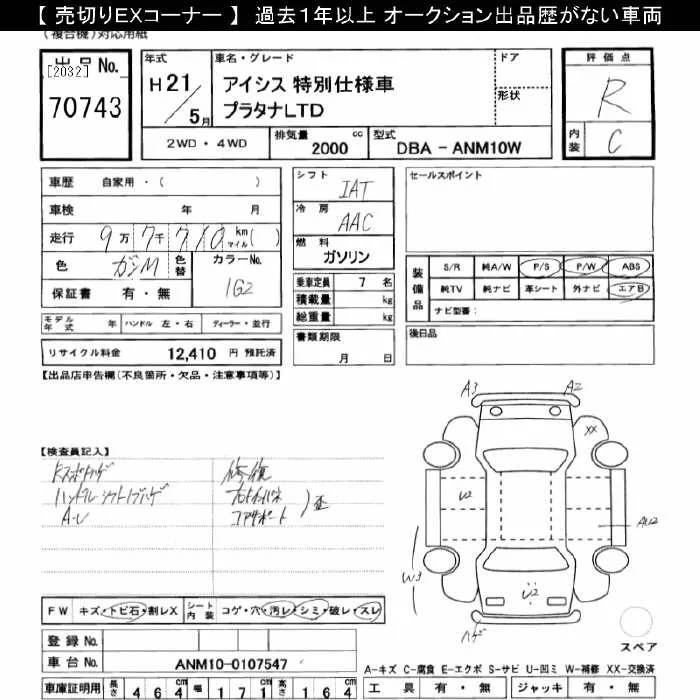 【 売切りEXコーナー 】 過去１年以上 オークション出品歴がない車両
(複合機)対応用紙
出品 No.
[2032]
70743
年式
H 21/5月
車名・グレード
アイシス 特別仕様車
プラタナLTD
ドア
形状
評価点
R
内装
C
2WD ・ 4WD
排気量
2000 cc
型式
DBA - ANM10W
車歴 自家用・( )
車検 年 月
走行 9万7千710km マイル( )
色 ガンM 色替 カラーNo. 1G2
保証書 有・無
シフト
IAT
冷房
AAC
燃料
ガソリン
乗車定員 7 名
積載量 kg
総重量 kg
書類期限
月 日
セールスポイント
装備品
S/R 純A/W P/S P/W ABS
純TV 純ナビ 革シート 外ナビ エアB
ナビ型番:
後日品
モデル年式 年 ハンドル 左・右 ディーラー・並行
リサイクル料金 12,410 円 預託済
【出品店申告欄(不良箇所・欠品・注意事項等)】
【検査員記入】
ハンドル シフトノブハゲ
A-U
修復
コアサポート
歪
A3
A2
XX
U2
AU2
W3
U2
ハゲ
スペア
FW キズ・トビ石・割レX
シート内装 コゲ・穴・汚レ・シミ・破レ・スレ
登録 No.
車台 No. ANM10-0107547
車庫証明用 長さ 464 幅 171 高さ 164
A-キズ C-腐食 E-エクボ S-サビ U-凹ミ W-補修 XX-交換済
工具 有・無 ジャッキ 有・無